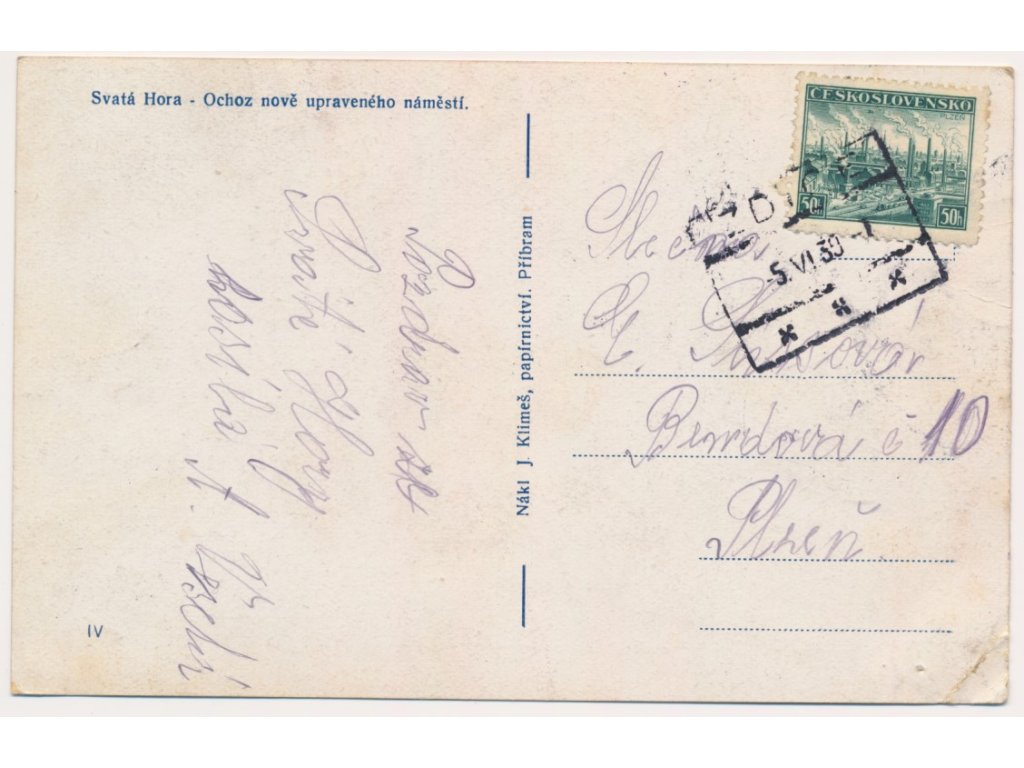 Svatá Hora - Ochoz nově upraveného náměstí.
ČESKOSLOVENSKO
PLZEŇ
50h 50h
-5.VI.39
Pozdrav ze
Svaté Hory
posílá A. Veselá
Nákl J. Klimeš, papírnictví. Příbram
Slečna
Plzeň
č 10
IV